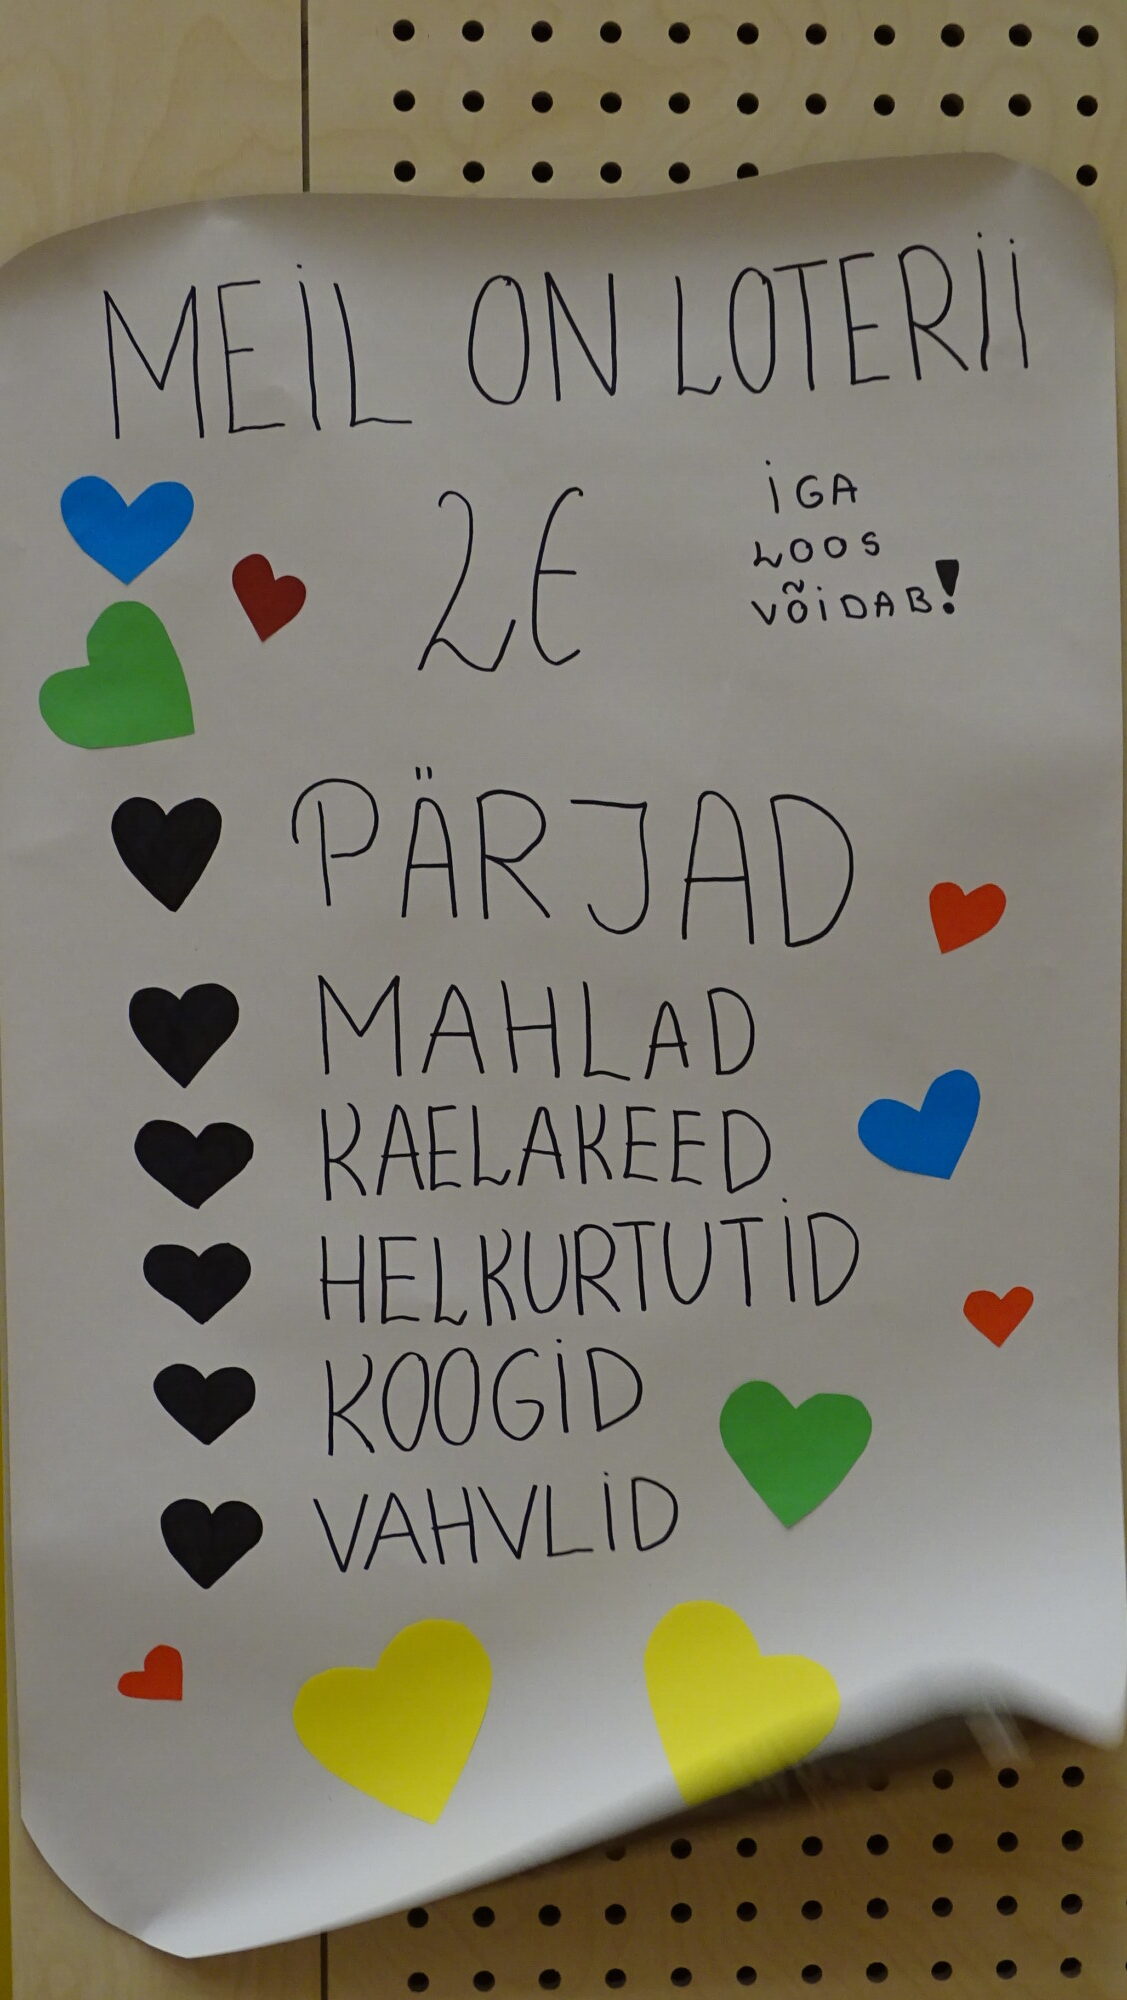 MEIL ON LOTERII
2€
IGA
LOOS
VÕIDAB!
PÄRJAD
MAHLAD
KAELAKEED
HELKURTUTID
KOOGID
VAHVLID